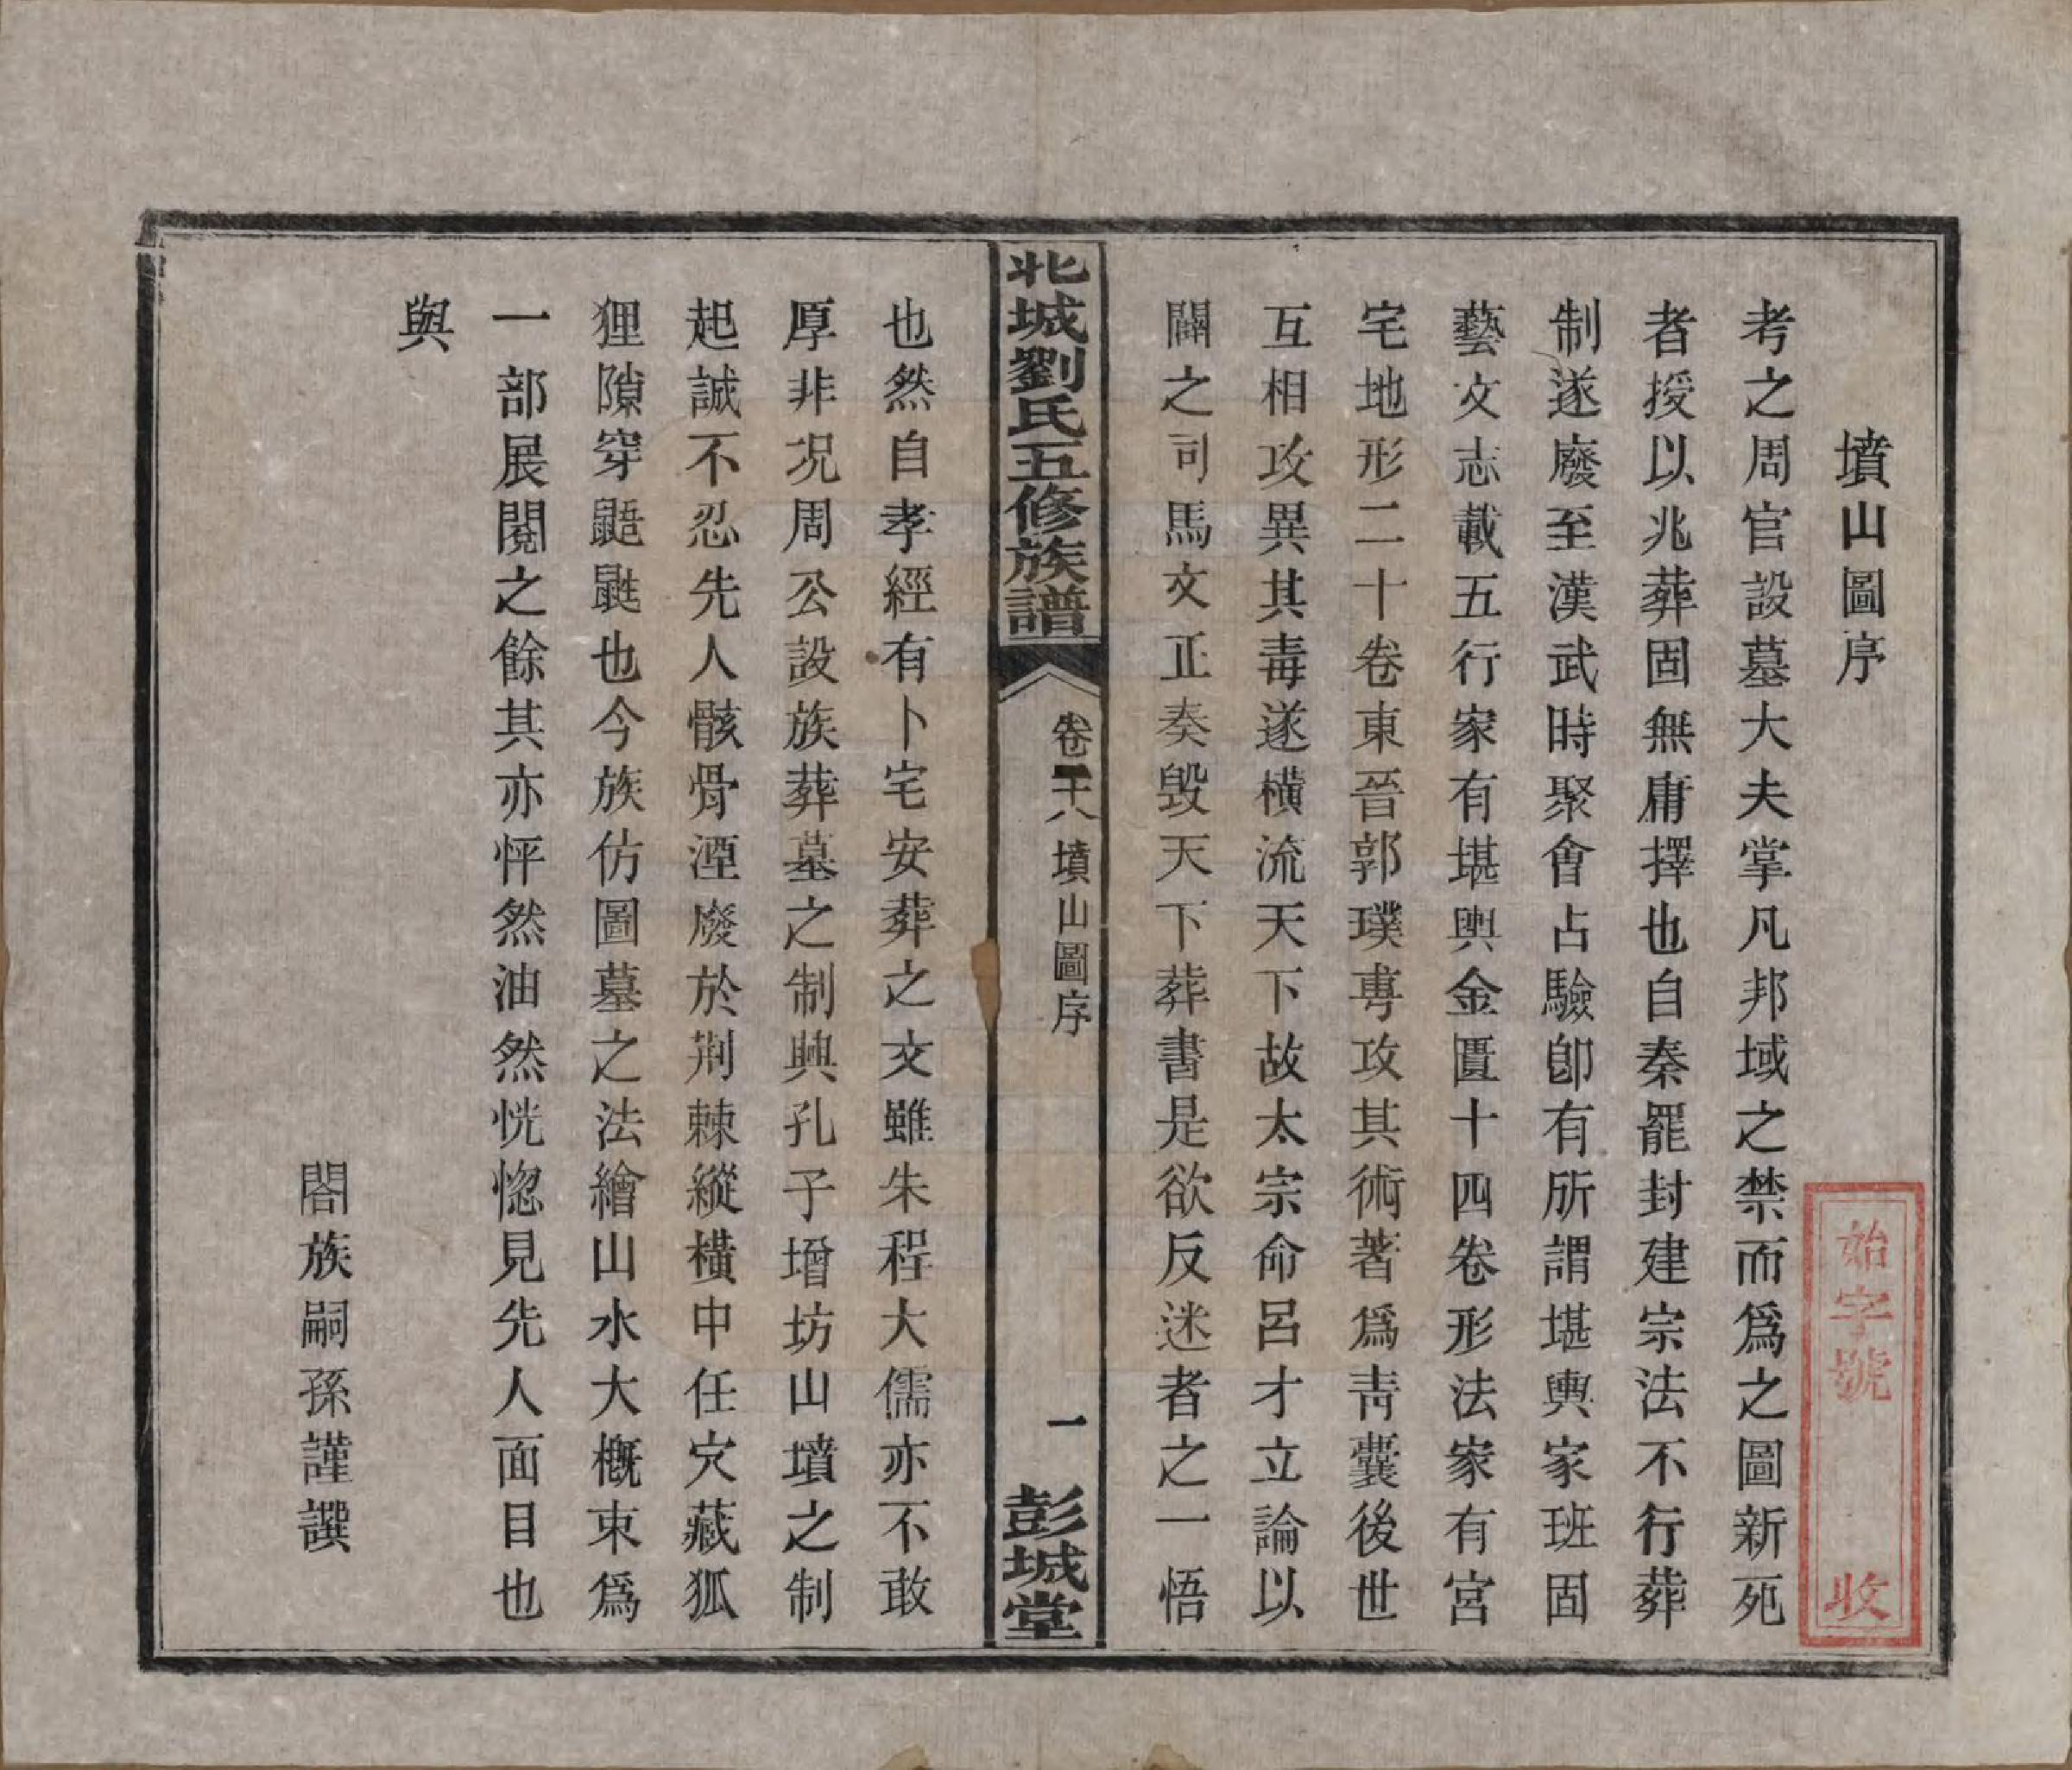 墳山圖序
考之周官設墓大夫掌凡邦域之禁而爲之圖新死
者授以兆葬固無庸擇也自秦罷封建宗法不行葬
制遂廢至漢武時聚會占驗卽有所謂堪輿家班固
藝文志載五行家有堪輿金匱十四卷形法家有宮
宅地形二十卷東晉郭璞專攻其術著爲靑囊後世
互相攻異其毒遂橫流天下故太宗命呂才立論以
闢之司馬文正奏毀天下葬書是欲反迷者之一悟
北城劉氏五修族譜
卷二十八 墳山圖序
一
彭城堂
也然自孝經有卜宅安葬之文雖朱程大儒亦不敢
厚非况周公設族葬墓之制興孔子增坊山墳之制
起誠不忍先人骸骨湮廢於荆棘縱橫中任穴藏狐
狸隙穿鼯鼪也今族仿圖墓之法繪山水大槪束爲
一部展閱之餘其亦怦然油然恍惚見先人面目也
與
閤族嗣孫謹譔
始字號
收